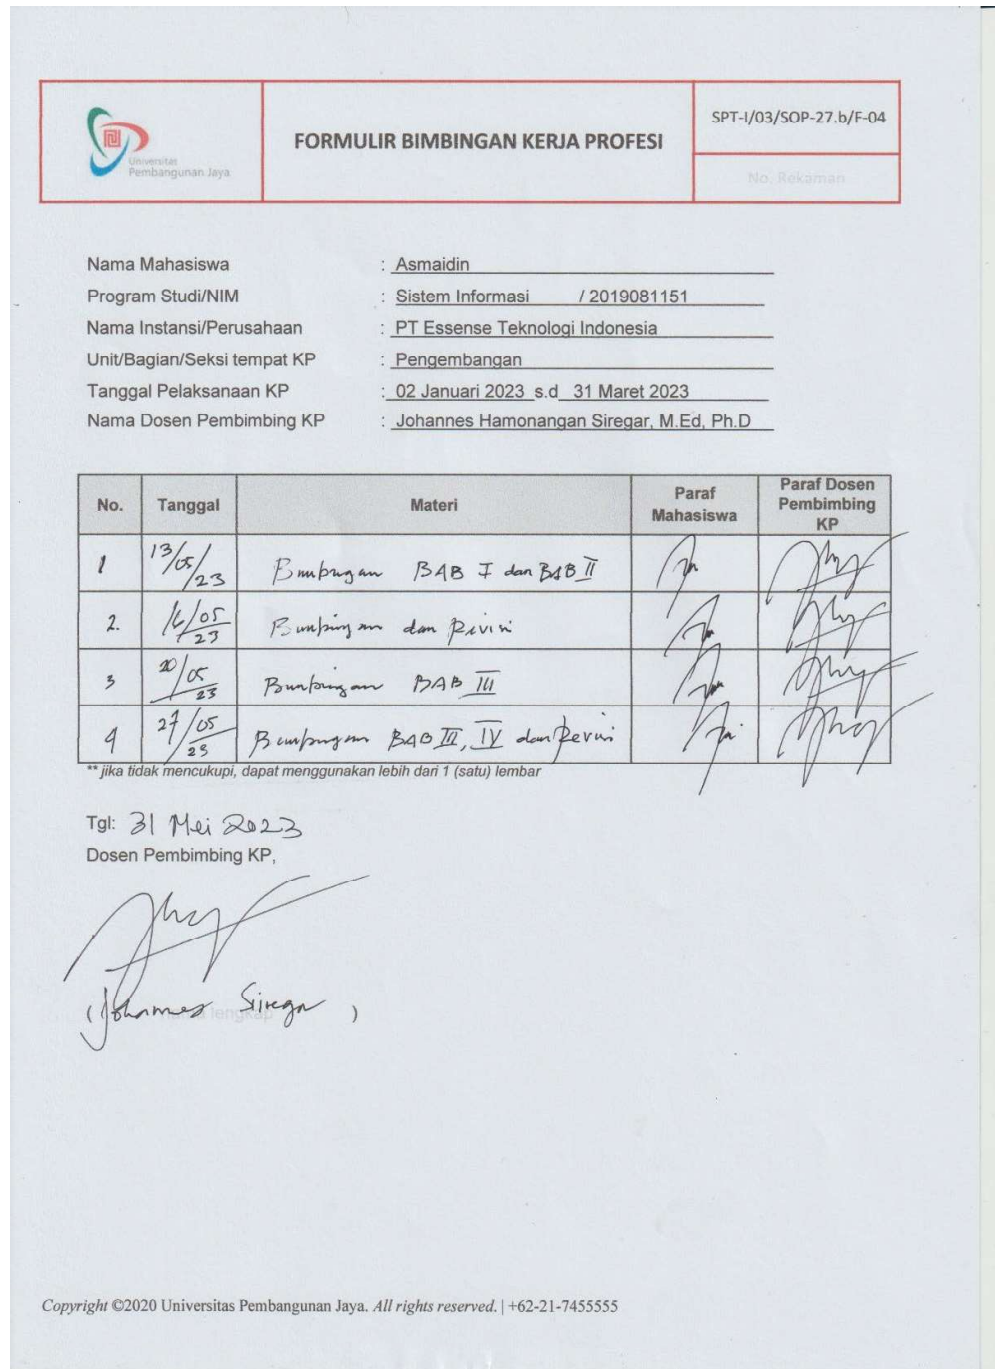 Universitas
Pembangunan Jaya
FORMULIR BIMBINGAN KERJA PROFESI
SPT-I/03/SOP-27.b/F-04
No. Rekaman
Nama Mahasiswa : Asmaidin
Program Studi/NIM : Sistem Informasi / 2019081151
Nama Instansi/Perusahaan : PT Essense Teknologi Indonesia
Unit/Bagian/Seksi tempat KP : Pengembangan
Tanggal Pelaksanaan KP : 02 Januari 2023 s.d 31 Maret 2023
Nama Dosen Pembimbing KP : Johannes Hamonangan Siregar, M.Ed, Ph.D
No. Tanggal Materi Paraf Mahasiswa Paraf Dosen Pembimbing KP
1 13/05/23 Bimbingan BAB I dan BAB II
2. /05/23 Bimbingan dan Revisi
3 20/05/23 Bimbingan BAB III
4 27/05/23 Bimbingan BAB III, IV dan Revisi
** jika tidak mencukupi, dapat menggunakan lebih dari 1 (satu) lembar
Tgl: 31 Mei 2023
Dosen Pembimbing KP,
(Johannes Siregar)
lengkap
Copyright ©2020 Universitas Pembangunan Jaya. All rights reserved. | +62-21-7455555